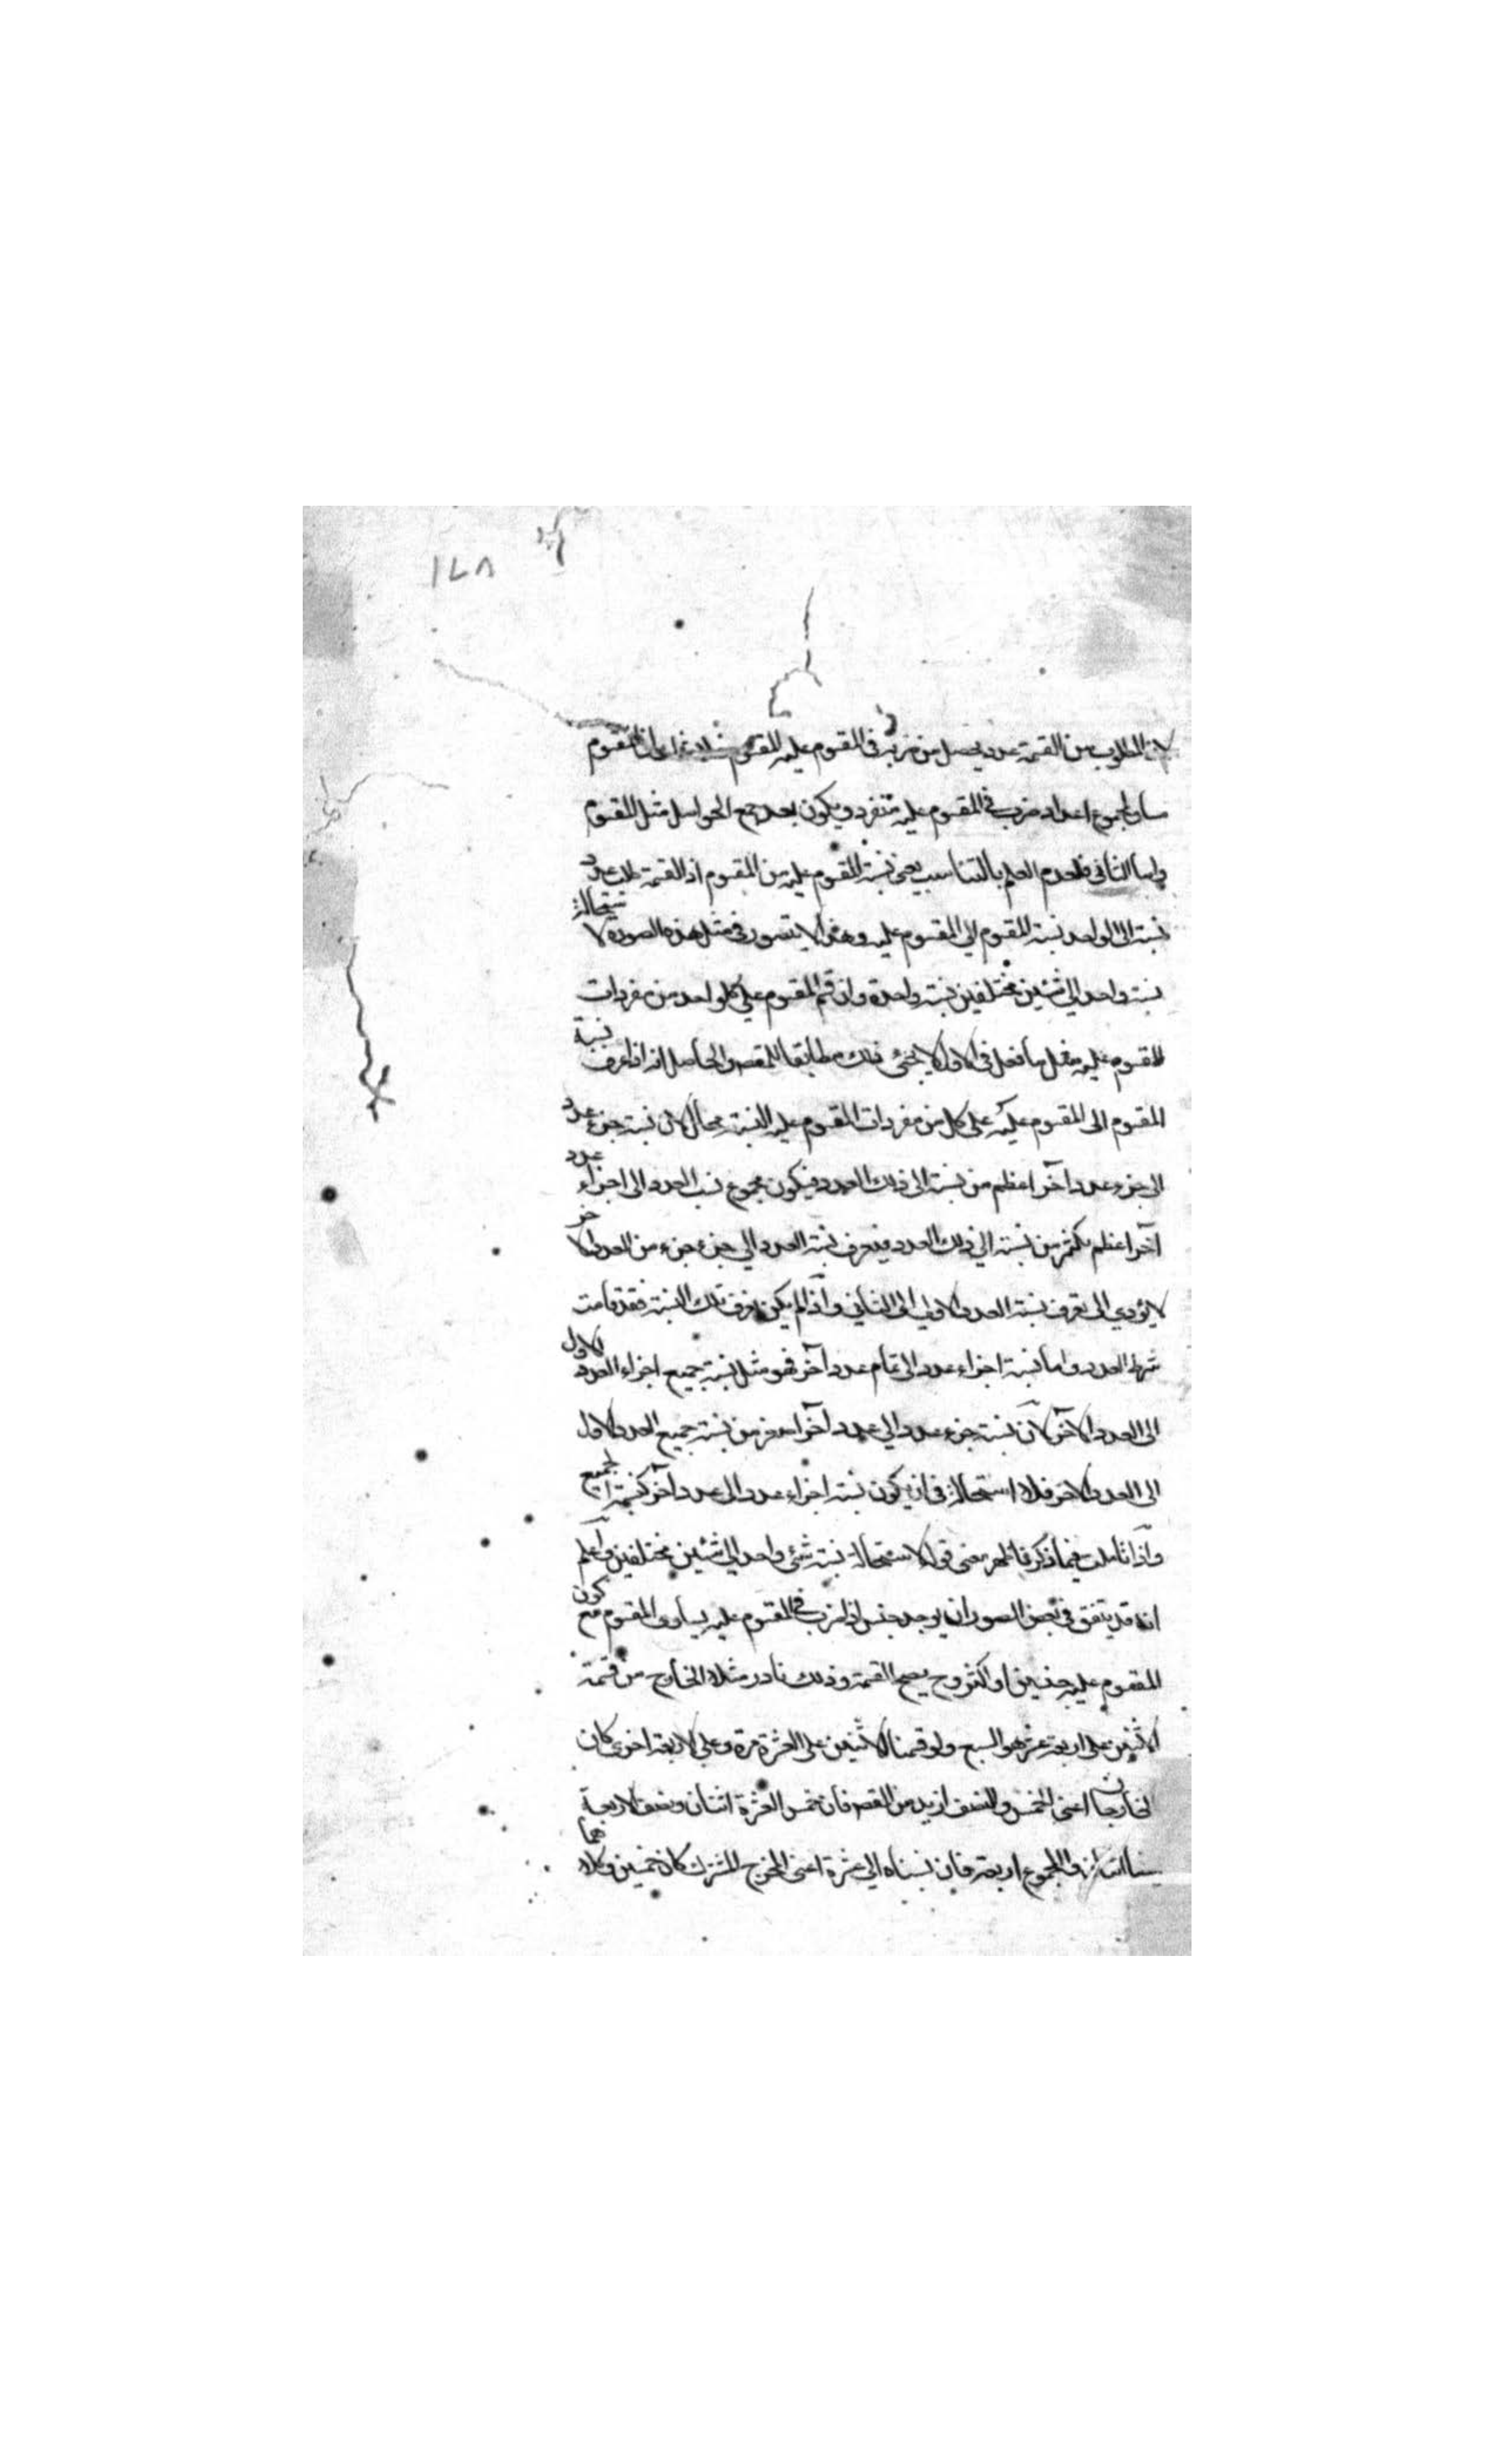 ١٢٨
لان المطلوب من القسمة عدد يحصل من ضربه في المقسوم عليه المقسوم المقسوم
مساو لمجموع اعداد ضرب في المقسوم عليه متفرد ويكون بعد جمع الحواصل مثل المقسوم
واما الثاني فلعدم العلم بالتناسب يعني نسبة المقسوم عليه من المقسوم اذ القسمة طلب عدد
نسبته الى الواحد نسبة المقسوم الى المقسوم عليه وهذا لا يتصور في مثل هذه الصورة لاستحالة
نسبة واحد الى شيئين مختلفين نسبة واحدة وان قسم المقسوم على كل واحد من مفردات
المقسوم عليه مثل ما فعل في الاول لا يجئ ذلك مطابقا للمقصد والحاصل انه اذا عرف نسبة
المقسوم الى المقسوم عليه على كل من مفردات المقسوم عليه النسبة بحال لان نسبة جزء عدد
الى جزء عدد آخر اعظم من نسبته الى ذلك العدد فيكون مجموع نسب العدد الى اجزاء عدد
آخر اعظم بكثير من نسبته الى ذلك العدد فتعرف نسبة العدد الى جزء جزء من العدد الآخر
لا يؤدي الى تعرف نسبة العدد الاول الى الثاني واذا لم يكن تعرف تلك النسبة فقد فاتت
شرط العدد واما نسبة اجزاء عدد الى تمام عدد آخر فهو مثل نسبة جميع اجزاء العدد الاول
الى العدد الآخر لان نسبة جزء عدد الى عدد آخر اصغر من نسبة جميع العدد الاول
الى العدد الآخر فلا استحالة في ان يكون نسبة اجزاء عدد الى عدد آخر كنسبة الجميع
واذا تاملت فيما ذكرنا ظهر معنى قوله لاستحالة نسبة شئ واحد الى شيئين مختلفين واعلم
انه قد يتفق في بعض الصور ان يوجد جنس اذا ضرب في المقسوم عليه يساوي المقسوم مع كون
المقسوم عليه جنسين او اكثر وح يصح القسمة وذلك نادر مثلا الخارج من قسمة
الاثنين على اربعة عشر هو السبع ولو قسمنا الاثنين على العشرة مرة وعلى الاربعة اخرى كان
الخارجان اعني الخمس والنصف ازيد من القصد فان خمس العشرة اثنان ونصف الاربعة
اثنان والمجموع اربعة فان نسبناه الى عشرة اعني المخرج المشترك كان خمسين وكلاهما